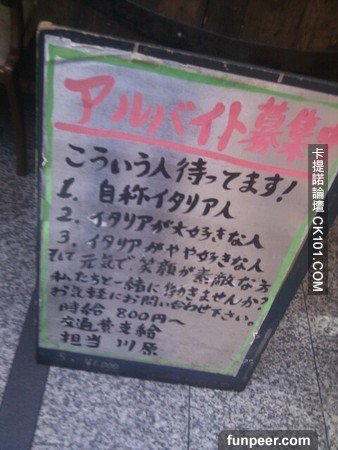 アルバイト募集中
こういう人待ってます!
1. 自称イタリア人
2. イタリアが大好きな人
3. イタリアがやや好きな人
そして元気で笑顔が素敵な方
私たちと一緒に働きませんか?
お気軽にお問い合わせ下さい。
時給 800円〜
交通費支給
担当 川原
卡提諾論壇 CK101.COM
funpeer.com